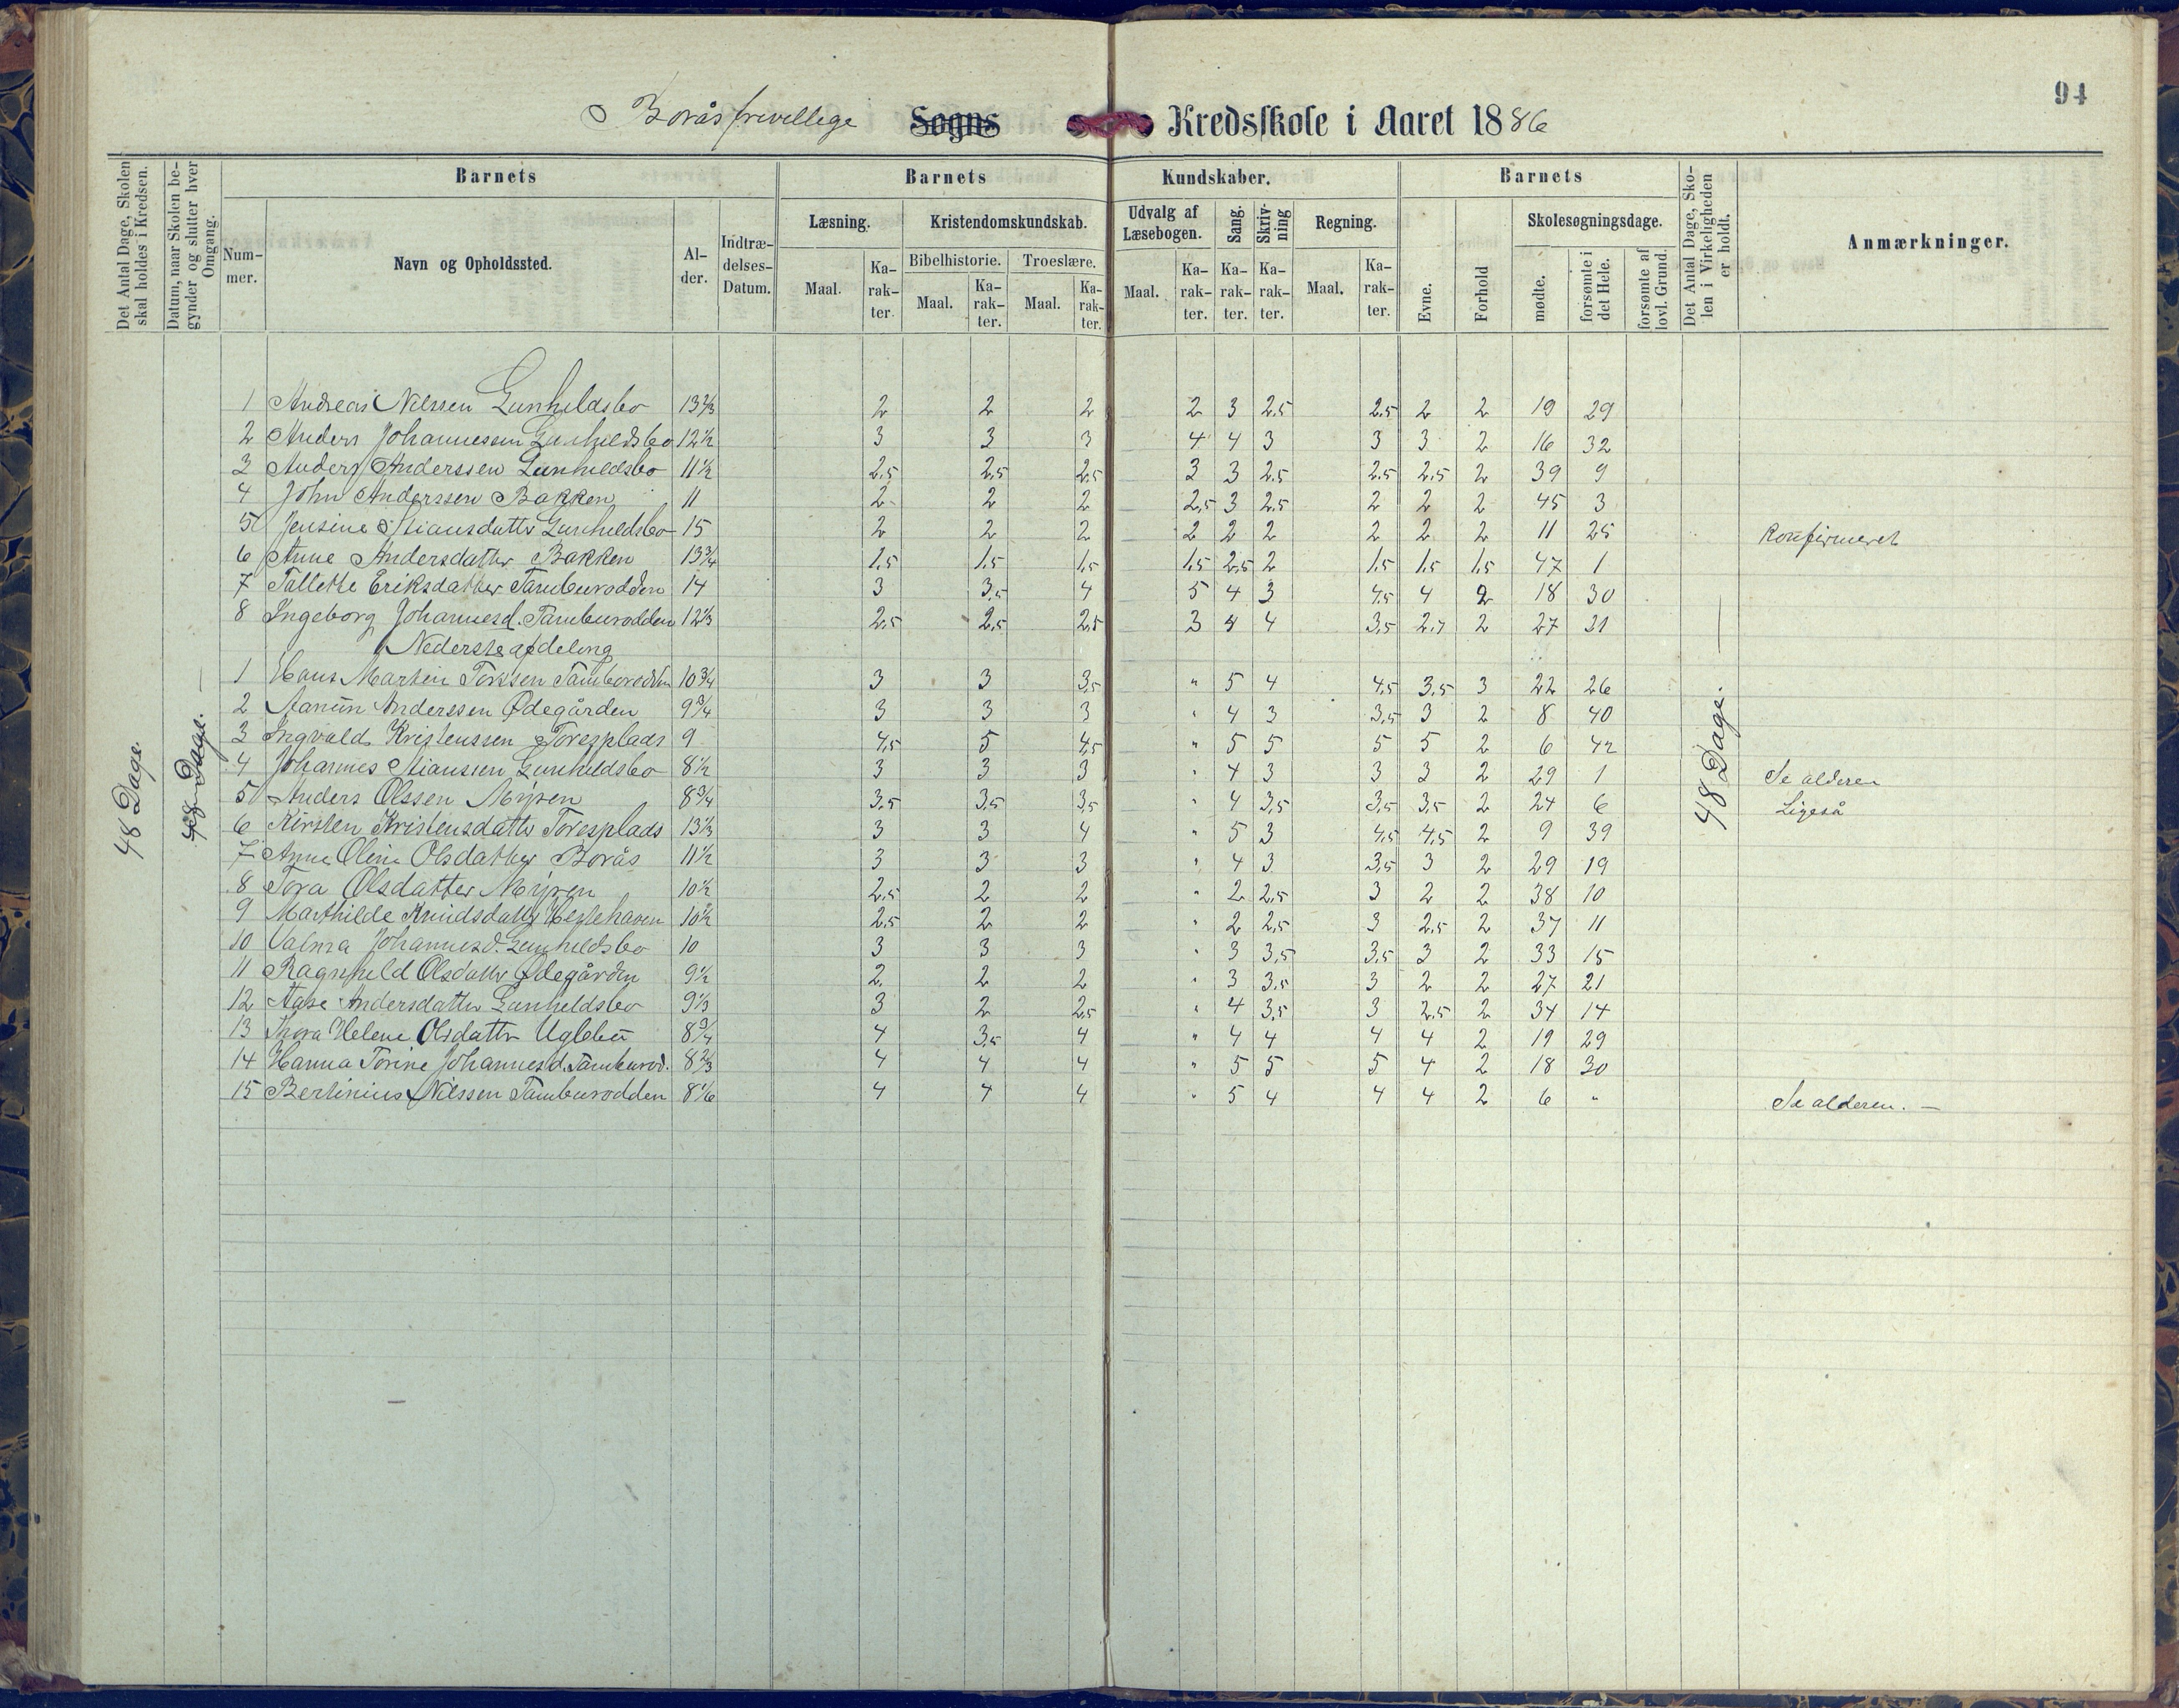 94
Borås frivillege Sogns Kredsskole i Aaret 1886
Det Antal Dage, Skolen skal holdes i Kredsen.
Datum, naar Skolen begynder og slutter hver Omgang.
Barnets
Barnets Kundskaber.
Barnets
Det Antal Dage, Skolen i Virkeligheden er holdt.
Anmærkninger.
Nummer.
Navn og Opholdssted.
Alder.
Indtrædelses-Datum.
Læsning.
Kristendomskundskab.
Udvalg af Læsebogen.
Sang.
Skrivning
Regning.
Evne.
Forhold
Skolesøgningsdage.
Bibelhistorie.
Troeslære.
Maal. Karakter. Maal. Karakter. Maal. Karakter. Maal. Karakter. Karakter. Karakter. Maal. Karakter.
mødte.
forsømte i det Hele.
forsømte af lovl. Grund.
48 Dage.
48 Dage.
48 Dage.
1 Andreas Nilssen Gunhildsbo 13 2/3 2 2 2 2 3 2.5 2.5 2 2 19 29
2 Anders Johannessen Gunhildsbo 12 1/2 3 3 3 4 4 3 3 3 2 16 32
3 Anders Anderssen Gunhildsbo 11 1/2 2,5 2,5 2,5 3 3 2.5 2.5 2,5 2 39 9
4 John Anderssen Bakken 11 2 2 2 2,5 3 2.5 2 2 2 45 3
5 Jensine Stiansdatter Gunhildsbo 15 2 2 2 2 2 2 2 2 2 11 25 Konfirmeret
6 Anne Andersdatter Bakken 13 3/4 1,5 1,5 1,5 1,5 2,5 2 1,5 1,5 1,5 47 1
7 Tallette Eriksdatter Tamburodden 14 3 3,5 4 5 4 3 4,5 4 2 18 30
8 Ingeborg Johannesd. Tamburodden 12 1/3 2,5 2,5 2,5 3 4 4 3,5 2 27 21
Nederste afdeling
1 Hans Martin Torssen Tamborodden 10 3/4 3 3 3,5 " 5 4 4,5 3,5 3 22 26
2 Anderssen Ødegården 9 3/4 3 3 3 " 4 3 3,5 3 2 8 40
3 Ingvald Kristenssen Toresplads 9 4,5 5 4,5 " 5 5 5 5 2 6 42
4 Johannes Stianssen Gunhildsbo 8 1/2 3 3 3 " 4 3 3 3 2 29 1 Se alderen
5 Anders Olssen Myren 8 3/4 3,5 3,5 3,5 " 4 3,5 3,5 3,5 2 24 6 Ligeså
6 Kirsten Kristensdatter Toresplads 13 1/3 3 3 4 " 5 3 4,5 4,5 2 9 39
7 Anne Oline Olsdatter Borås 11 1/2 3 3 3 " 4 3 3,5 3 2 29 19
8 Tora Olsdatter Myren 10 1/2 2,5 2 2 " 2 2,5 3 2 2 38 10
9 Marthilde Knudsdatter Hestehaven 10 1/2 2,5 2 2 " 2 2,5 3 2,5 2 37 11
10 Valma Johannesd. Gunhildsbo 10 3 3 3 " 3 3,5 3,5 3 2 33 15
11 Ragnhild Olsdatter Ødegården 9 1/2 2 2 2 " 3 3,5 3 2 2 27 21
12 Aase Andersdatter Gunhildsbo 9 1/3 3 2 2,5 " 4 3,5 3 2,5 2 34 14
13 Thora Helene Olsdatter Uglebu 8 3/4 4 3,5 4 " 4 4 4 4 2 19 29
14 Hanna Torine Johannesd. Tamburod. 8 2/3 4 4 4 " 5 5 5 4 2 18 30
15 Bertinius Nilssen Tamburodden 8 1/6 4 4 4 " 5 4 4 4 2 6 " Se alderen. —